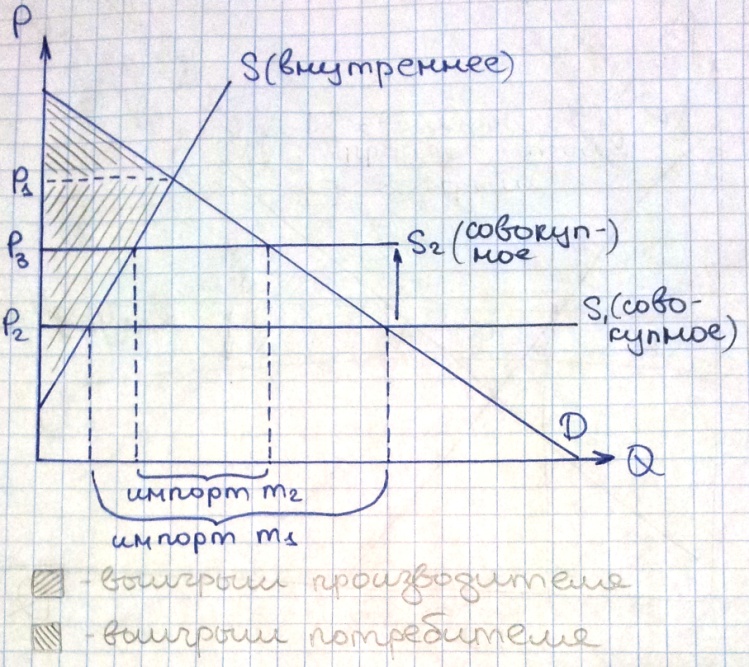 P
S (внутреннее)
P₁
P₃
S₂ (совокуп-
ное)
P₂
S₁ (сово-
купное)
D
Q
импорт m₂
импорт m₁
- выигрыш производителя
- выигрыш потребителя